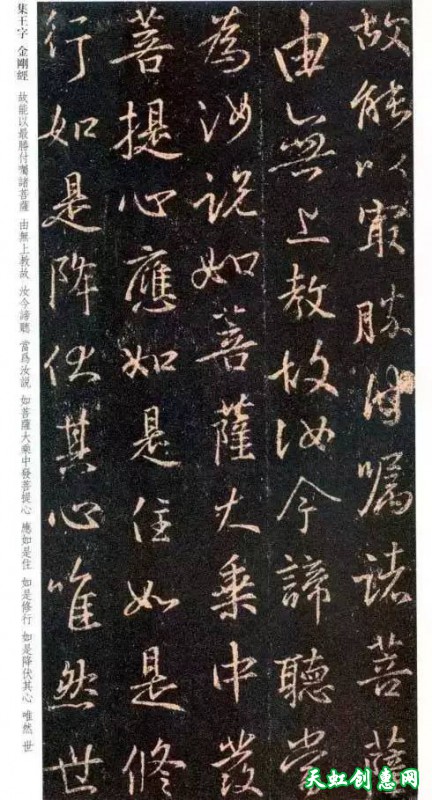 故能以最勝付囑諸菩薩
由無上教故汝今諦聽當
為汝說如菩薩大乘中發
菩提心應如是住如是修
行如是降伏其心唯然世
集王字 金剛經 故能以最勝付囑諸菩薩 由無上教故 汝今諦聽 當爲汝説 如菩薩大乘中發菩提心 應如是住 如是修行 如是降伏其心 唯然 世
天虹创惠网